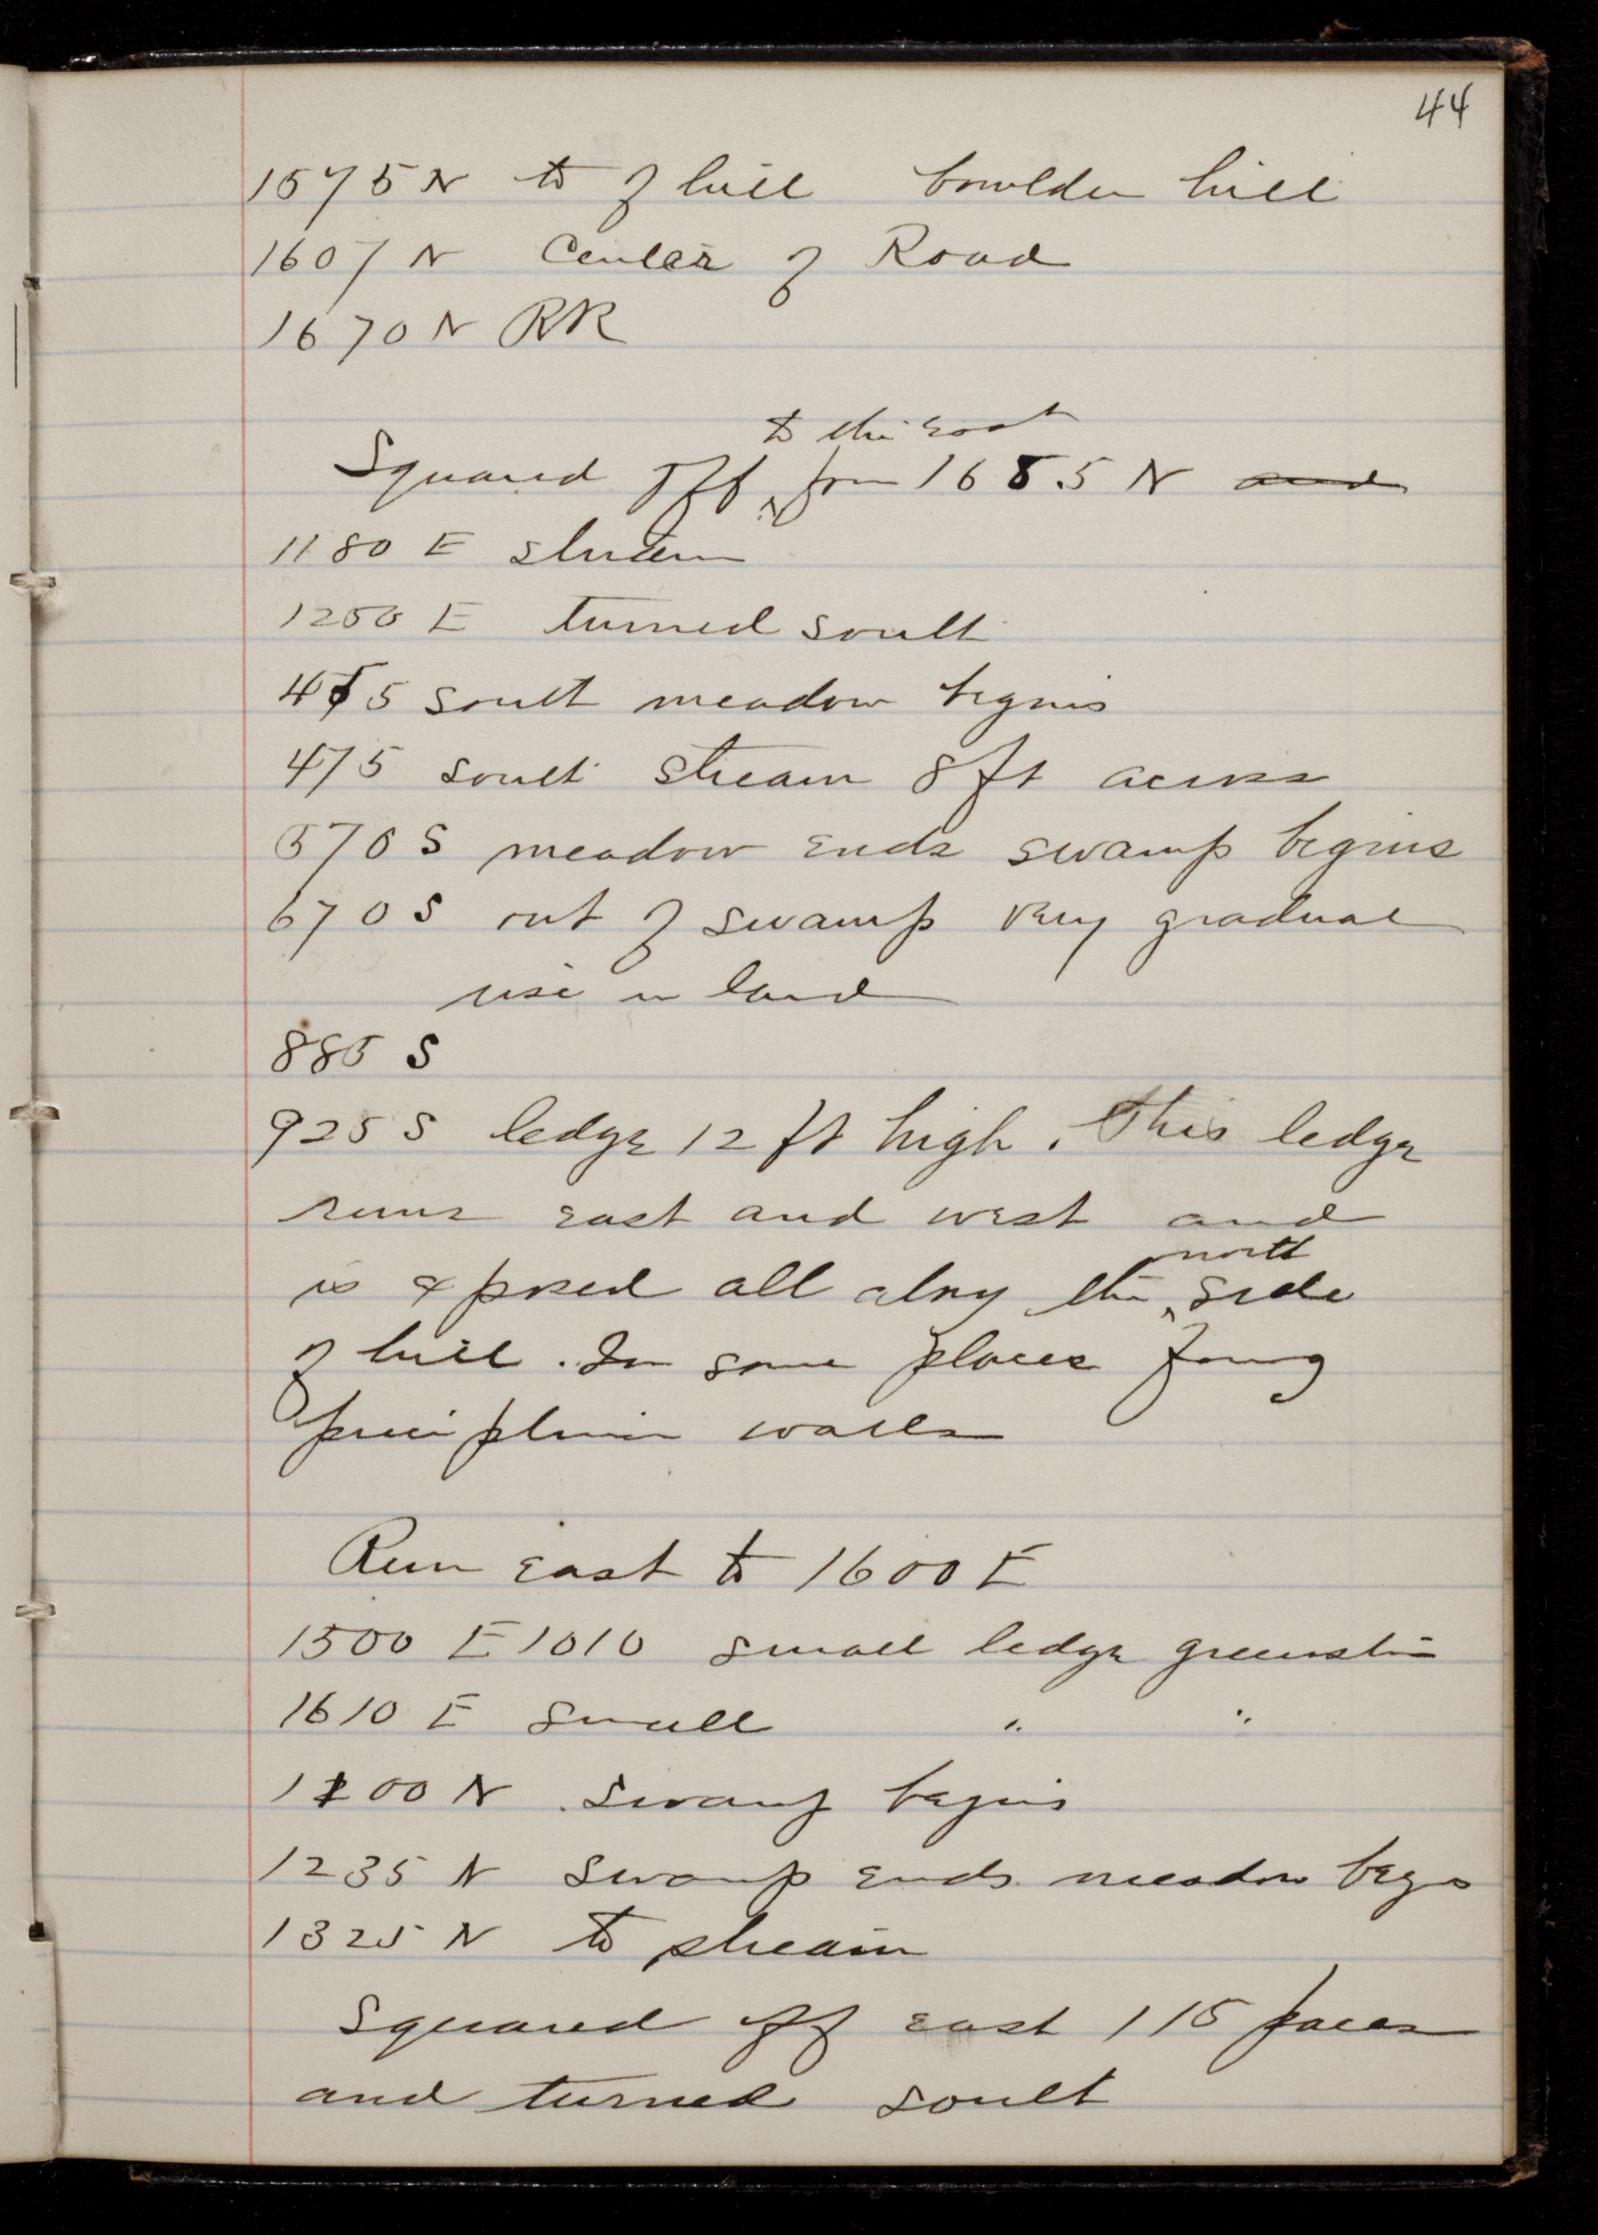 44
1575 N to of hill bowlder hill
1607 N Center of Road
1670 N RR
to the east
Squared off from 1685 N and
1180 E stream
1250 E turned south
455 south meadow begins
475 south stream 8 ft across
570 S meadow ends swamp begins
670 S out of swamp very gradual
rise in land
885 S
925 S ledge 12 ft high. This ledge
runs east and west and
north
is exposed all along the side
of hill. In some places forming
walls
Run east to 1600 E
1500 E 1010 small ledge greenstone
1610 E small " "
1200 N swamp begins
1235 N swamp ends meadow begins
1325 N to stream
Squared off east 115 paces
and turned south